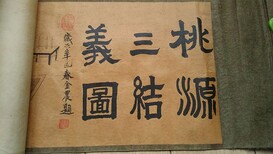 桃源
三結
義圖
歲次年元春金農題